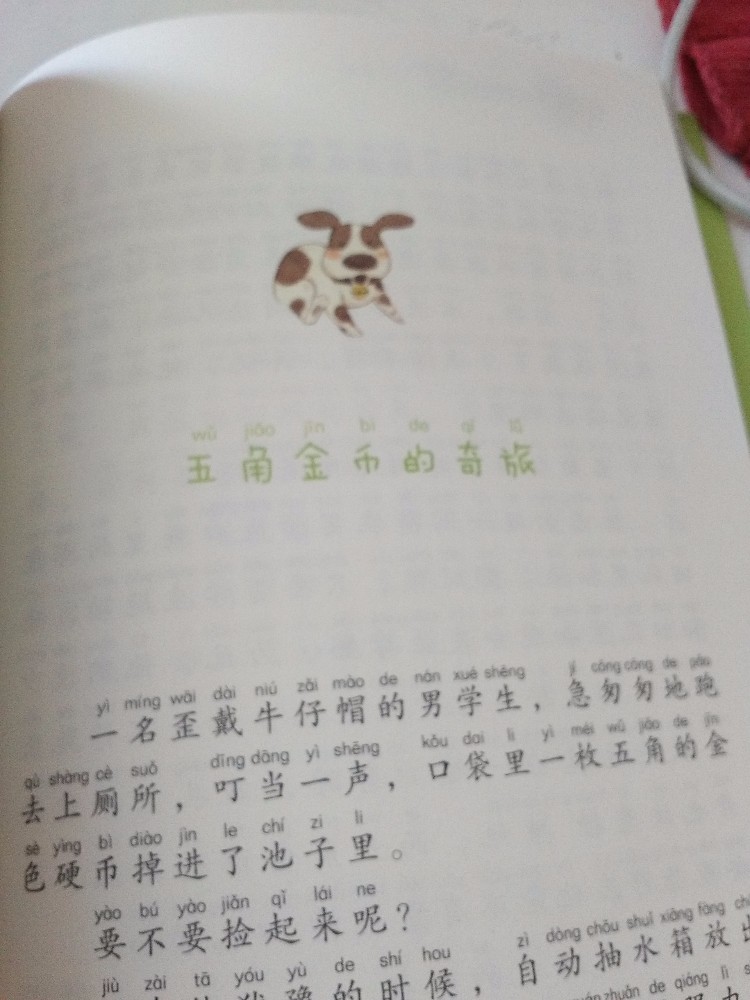 wǔ jiǎo jīn bì de qí lǚ
五角金币的奇旅
yì míng wāi dài niú zǎi mào de nán xué shēng jí cōng cōng de pǎo
一名歪戴牛仔帽的男学生，急匆匆地跑
qù shàng cè suǒ dīng dāng yì shēng kǒu dai li yì méi wǔ jiǎo de jīn
去上厕所，叮当一声，口袋里一枚五角的金
sè yìng bì diào jìn le chí zi li
色硬币掉进了池子里。
yào bú yào jiǎn qǐ lái ne
要不要捡起来呢？
jiù zài tā yóu yù de shí hou zì dòng chōu shuǐ xiāng fàng
犹豫的时候，自动抽水箱放
zhuǎn de qiáng lì